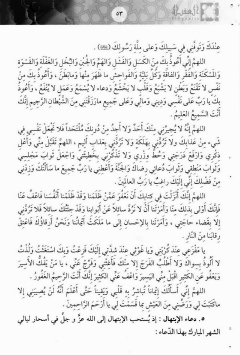 ٥٣
عِنْدَكَ وَتَوَفَّنِي فِي سَبِيلِكَ وَعَلى مِلَّةِ رَسُولِكَ
اللهُمَّ إِنِّي أَعُوذُ بِكَ مِنَ الكَسَلِ وَالفَشَلِ وَالهَمِّ وَالجُبْنِ وَالبُخْلِ وَالغَفْلَةِ وَالقَسْوَةِ
وَالمَسْكَنَةِ وَالفَقْرِ وَالفَاقَةِ وَكُلِّ بَلِيَّةٍ وَالفَوَاحِشِ ما ظَهَرَ مِنْهَا وَمابَطَنَ، وَأَعُوذُ بِكَ مِنْ
نَفْسٍ لا تَقْنَعُ وَبَطْنٍ لا يَشْبَعُ وَقَلْبٍ لا يَخْشَعُ وَدُعاءٍ لا يُسْمَعُ وَعَمَلٍ لا يَنْفَعُ، وَأَعُوذُ
بِكَ يا رَبِّ عَلى نَفْسِي وَدِينِي وَمالِي وَعَلى جَمِيعِ ما رَزَقْتَنِي مِنَ الشَّيْطانِ الرَّجِيمِ إِنَّكَ أَنْتَ
السَّمِيعُ العَلِيمُ.
اللهُمَّ إِنَّهُ لا يُجِيرُنِي مِنْكَ أَحَدٌ وَلا أَجِدُ مِنْ دُونِكَ مُلْتَحَداً فَلا تَجْعَلْ نَفْسِي فِي
شَيْءٍ مِنْ عَذابِكَ وَلا تَرُدَّنِي بِهَلَكَةٍ وَلا تَرُدَّنِي بِعَذابٍ أَلِيمٍ، اللهُمَّ تَقَبَّلْ مِنِّي وَأَعْلِ
ذِكْرِي وَارْفَعْ دَرَجَتِي وَحُطَّ وِزْرِي وَلا تَذْكُرْنِي بِخَطِيئَتِي وَاجْعَلْ ثَوابَ مَجْلِسِي
وَثَوابَ مَنْطِقِي وَثَوابَ دُعائِي رِضاكَ وَالجَنَّةَ وَأَعْطِنِي يا رَبِّ جَمِيعَ ما سَأَلْتُكَ وَزِدْنِي
مِنْ فَضْلِكَ إِنِّي إِلَيْكَ راغِبٌ يا رَبَّ العالَمِينَ.
اللهُمَّ إِنَّكَ أَنْزَلْتَ فِي كِتابِكَ أَنْ نَعْفُوَ عَمَّنْ ظَلَمَنا وَقَدْ ظَلَمْنا أَنْفُسَنا فَاعْفُ عَنَّا
فَإِنَّكَ أَوْلى بِذلِكَ مِنَّا وَأَمَرْتَنا أَنْ لا نَرُدَّ سائِلاً عَنْ أَبْوابِنا وَقَدْ جِئْتُكَ سائِلاً فَلا تَرُدَّنِي
إِلّا بِقَضاءِ حاجَتِي، وَأَمَرْتَنا بِالإِحْسانِ إِلى ما مَلَكَتْ أَيْمانُنا وَنَحْنُ أَرِقَّاؤُكَ فَأَعْتِقْ
رِقابَنا مِنَ النَّارِ.
يا مَفْزَعِي عِنْدَ كُرْبَتِي وَيا غَوْثِي عِنْدَ شِدَّتِي إِلَيْكَ فَزِعْتُ وَبِكَ اسْتَغَثْتُ وَلُذْتُ
لا أَلُوذُ بِسِواكَ وَلا أَطْلُبُ الفَرَجَ إِلّا مِنْكَ فَأَغِثْنِي وَفَرِّجْ عَنِّي، يا مَنْ يَفُكُّ الأَسِيرَ
وَيَعْفُو عَنِ الكَثِيرِ اقْبَلْ مِنِّي اليَسِيرَ وَاعْفُ عَنِّي الكَثِيرَ إِنَّكَ أَنْتَ الرَّحِيمُ الغَفُورُ.
اللهُمَّ إِنِّي أَسْأَلُكَ إِيماناً تُباشِرُ بِهِ قَلْبِي وَيَقِيناً حَتَّى أَعْلَمَ أَنَّهُ لَنْ يُصِيبَنِي إِلّا
ما كَتَبْتَ لِي وَرَضِّنِي مِنَ العَيْشِ بِما قَسَمْتَ لِي يا أَرْحَمَ الرَّاحِمِينَ.
٥. دعاء الإبتهال : إذ يُستحب الإبتهال إلى الله عزّ و جلّ في أسحار ليالي
الشهر المبارك بهذا الدعاء :